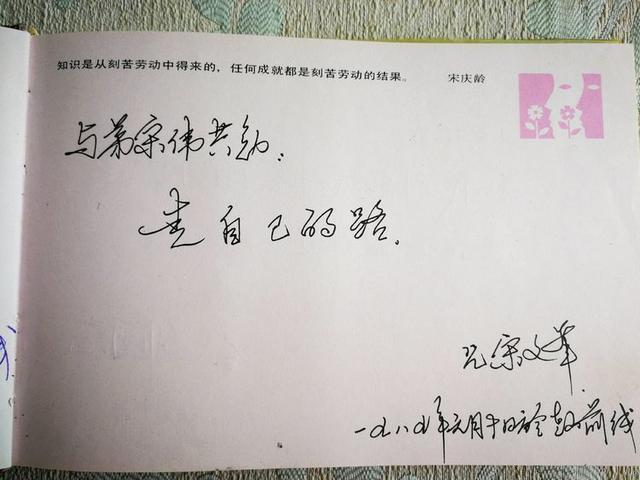 知识是从刻苦劳动中得来的，任何成就都是刻苦劳动的结果。 宋庆龄
与弟宗伟共勉：
走自己的路。
兄宗文军
一九八九年元月十日于老山前线